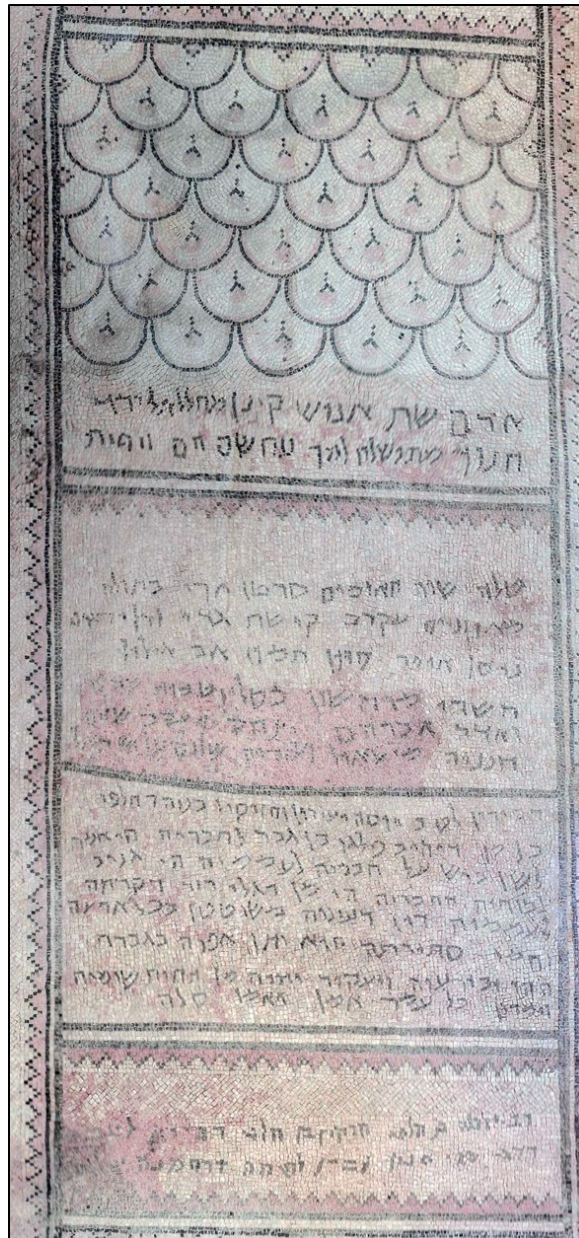 אדם שת אנוש קינן מהללאל ירד
חנוך מתושלח למך נח שם חם ויפת
טלה שור תאומים סרטן ארי בתולה
מאוזניים עקרב קשת גדי ודלי דגים
ניסן אייר סיון תמוז אב אילול
תשרי מרחשון כסליו טבית שבט
ואדר אברהם יצחק יעקב שלום
חנניה מישאיל ועזריה שלום על ישראל
דכירין לטב יוסה ועירון וחזקיו בנוה דחלפי
כל מן דיהיב פלגו בן גבר לחבריה הי אמר
לשן ביש על חבריה לעממיה הי גניב
צבותיה דחבריה הי מן דגלי רזה דקרתה
לעממיה דין דעינוה משוטטן בכל ארעה
וחמי סתירתה הוא יתן אפוה בגברה
ההו ובזרעיה ויעקור יתיה מן תחות שומיה
וימרון כל עמה אמן ואמן סלה
רבי יוסה בן חלפי חזקיו בן חלפי דכירין לטב
סגי הנון עבדו לשמה דרחמנה שלום